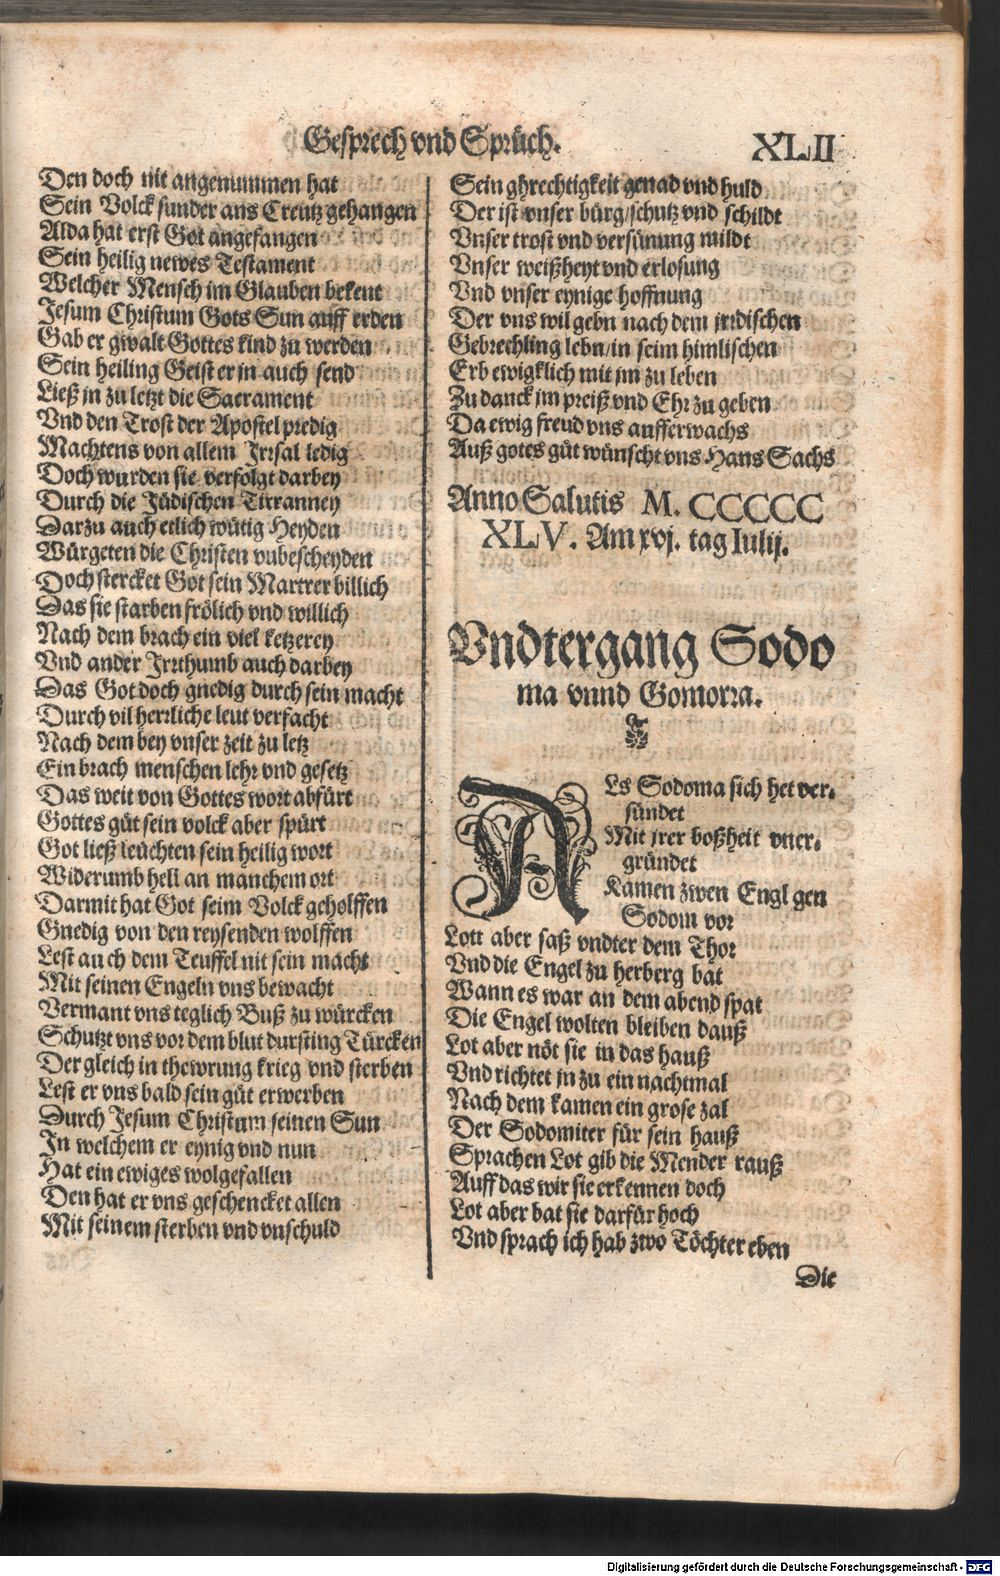 Gesprech vnd Sprüch.
XLII
Den doch nit angenummen hat
Sein Volck sunder ans Creutz gehangen
Alda hat erst Got angefangen
Sein heilig newes Testament
Welcher Mensch im Glauben bekent
Jesum Christum Gots Sun auff erden
Gab er gwalt Gottes kind zu werden
Sein heiling Geist er jn auch send
Ließ jn zu letzt die Sacrament
Vnd den Trost der Apostel predig
Machtens von allem Jrrsal ledig
Doch wurden sie verfolgt darbey
Durch die Jüdischen Tirranney
Darzu auch etlich wütig Heyden
Würgeten die Christen vnbescheyden
Doch stercket Got sein Martrer billich
Das sie starben frölich vnd willich
Nach dem brach ein viel ketzerey
Vnd ander Jrrthumb auch darbey
Das Got doch gnedig durch sein macht
Durch vil herrliche leut verfacht
Nach dem bey vnser zeit zu letz
Ein brach menschen lehr vnd gesetz
Das weit von Gottes wort abfürt
Gottes güt sein volck aber spürt
Got ließ leüchten sein heilig wort
Widerumb hell an manchem ort
Darmit hat Got seim Volck geholffen
Gnedig von den reysenden wolffen
Lest auch dem Teuffel nit sein macht
Mit seinen Engeln vns bewacht
Vermant vns teglich Buß zu würcken
Schutzt vns vor dem blut dursting Türcken
Der gleich in thewrung krieg vnd sterben
Lest er vns bald sein güt erwerben
Durch Jesum Christum seinen Sun
In welchem er eynig vnd nun
Hat ein ewiges wolgefallen
Den hat er vns geschencket allen
Mit seinem sterben vnd vnschuld
Sein ghrechtigkeit genad vnd huld
Der ist vnser bürg/schutz vnd schildt
Vnser trost vnd versünung mildt
Vnser weißheyt vnd erlosung
Vnd vnser eynige hoffnung
Der vns wil gebn nach dem jrrdischen
Gebrechling lebn/in seim himlischen
Erb ewigklich mit jm zu leben
Zu danck jm preiß vnd Ehr zu geben
Da ewig freud vns aufferwachs
Auß gotes güt wünscht vns Hans Sachs
Anno Salutis M. CCCCC
XLV. Am xvj. tag Iulij.
Vndtergang Sodo
ma vnnd Gomorra.
ALs Sodoma sich het ver-
sündet
Mit jrer boßheit vner-
gründet
Kamen zwen Engl gen
Sodom vor
Lott aber saß vndter dem Thor
Vnd die Engel zu herberg bat
Wann es war an dem abend spat
Die Engel wolten bleiben dauß
Lot aber nöt sie in das hauß
Vnd richtet jn zu ein nachtmal
Nach dem kamen ein grose zal
Der Sodomiter für sein hauß
Sprachen Lot gib die Mender rauß
Auff das wir sie erkennen doch
Lot aber bat sie darfür hoch
Vnd sprach ich hab zwo Töchter eben
Die
Digitalisierung gefördert durch die Deutsche Forschungsgemeinschaft - DFG